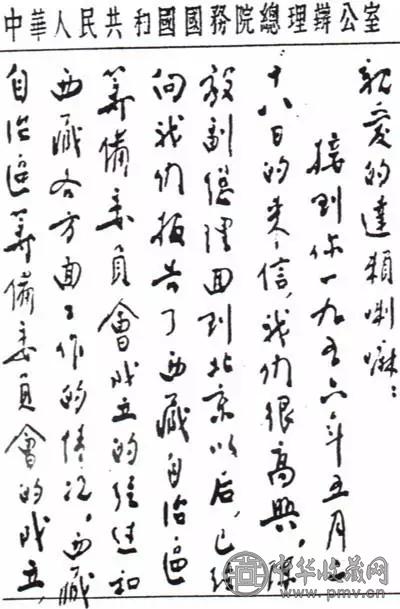 中華人民共和國國務院總理辦公室
親愛的達賴喇嘛：
接到你一九五六年五月二
十八日的来信，我们很高興。陳
毅副總理回到北京以后，已經
向我们报告了西藏自治區
籌備委員會成立的經過和
西藏各方面工作的情况。西藏
自治區籌備委員會的成立，
中华收藏网
www.pmv.cn